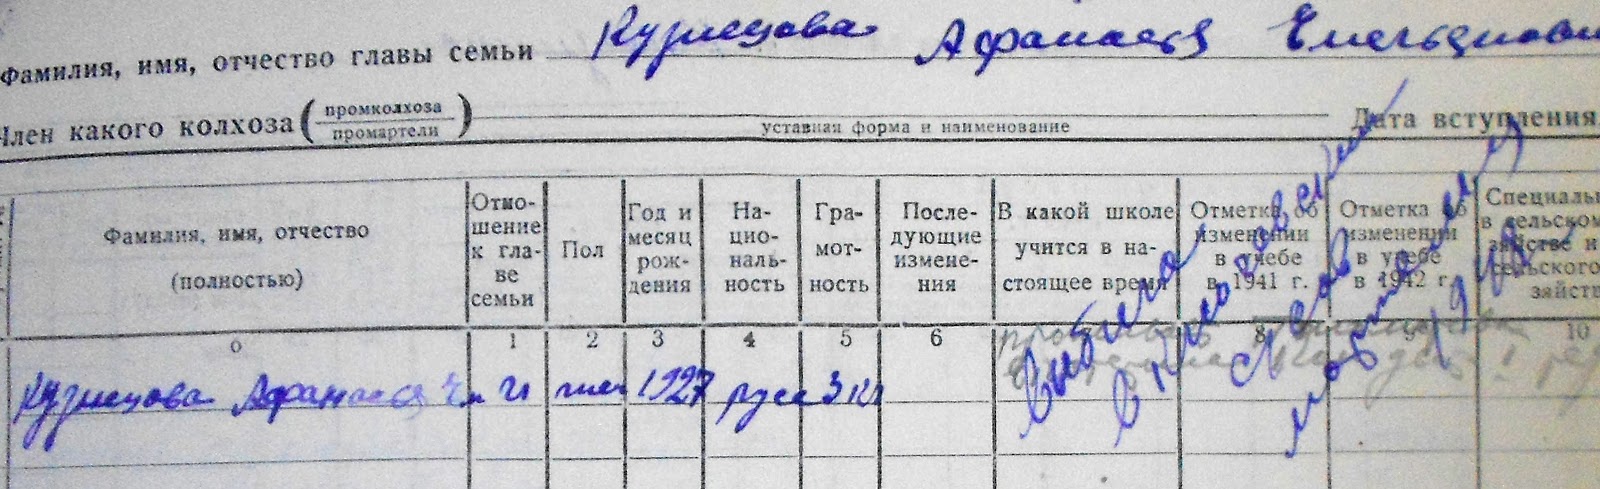 Фамилия, имя, отчество главы семьи Кузнецова Афанасья Емельянови
Член какого колхоза (промколхоза
промартели) Дата вступления
уставная форма и наименование
Фамилия, имя, отчество
(полностью)
Отно-
шение
к гла-
ве
семьи
Пол
Год и
месяц
рож-
дения
На-
цио-
наль-
ность
Гра-
мот-
ность
После-
дующие
измене-
ния
В какой школе
учится в на-
стоящее время
Отметка об
изменении
в учебе
в 1941 г.
Отметка об
изменении
в учебе
в 1942 г.
Специаль
в сельском
зяйстве и
сельского
зяйст
0 1 2 3 4 5 6 8 9 10
Кузнецова Афанасья Ем гл жен 1927 русс 3 кл
Выбыла
в